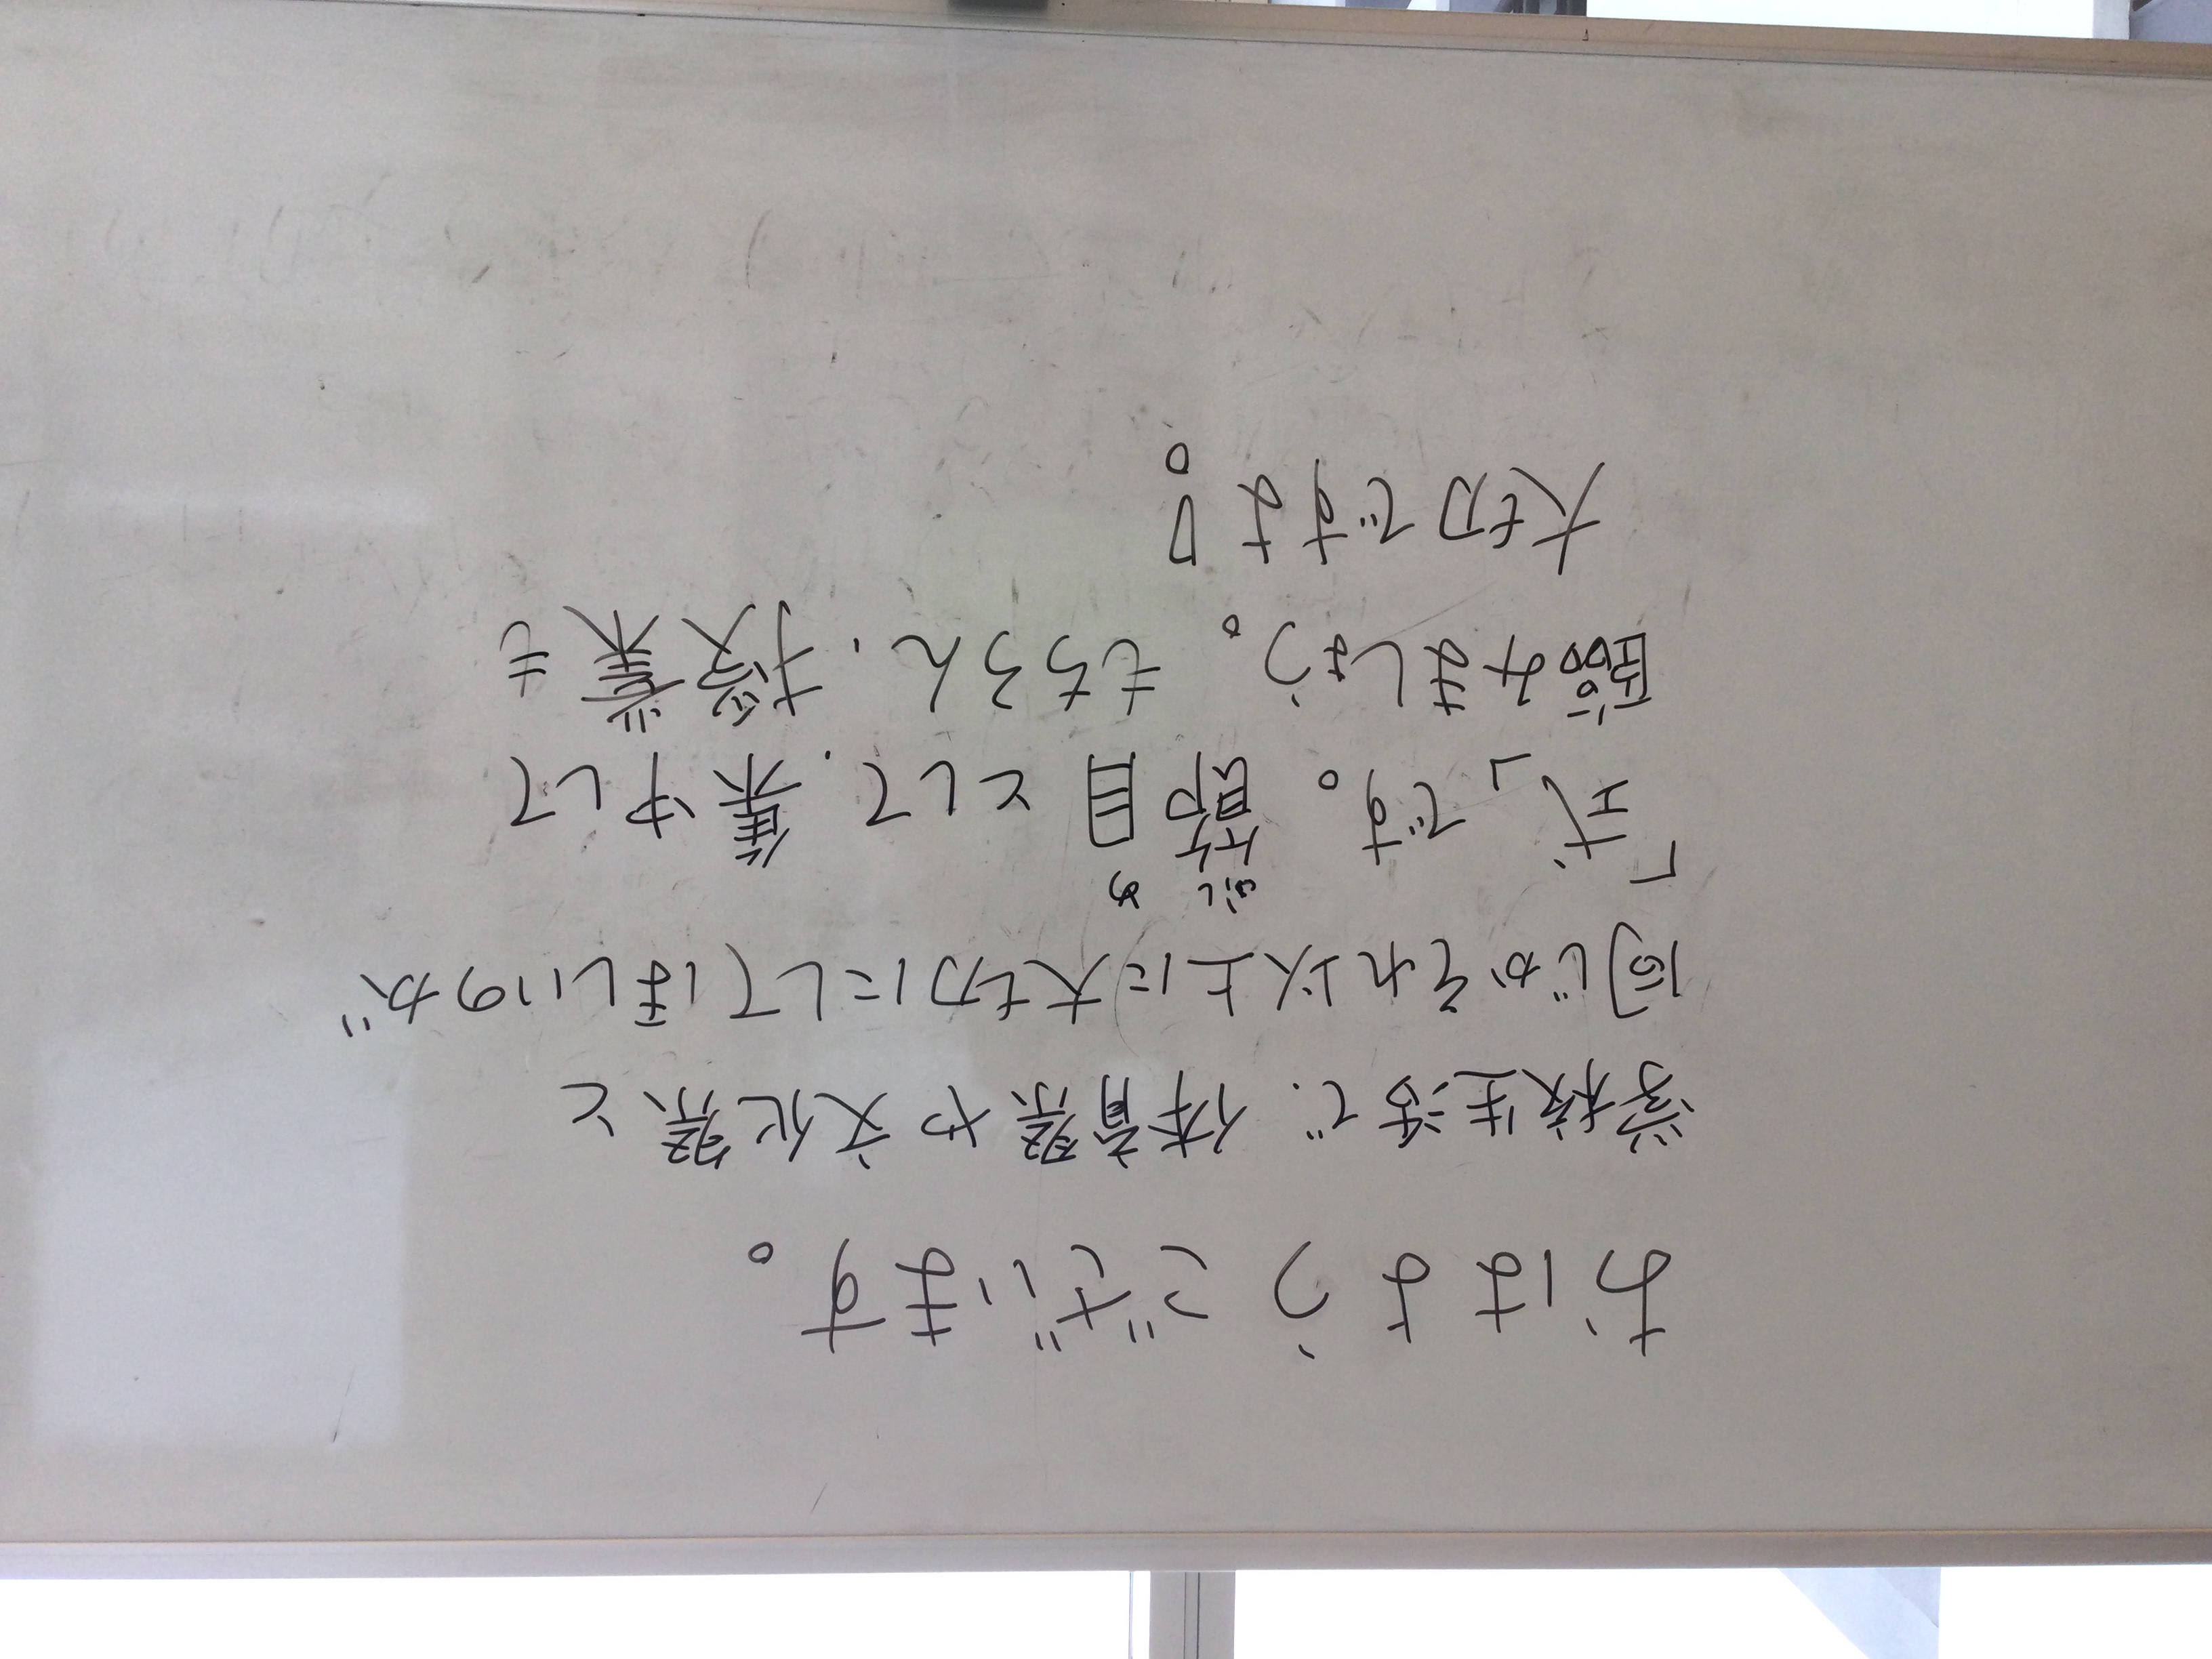 おはようございます。
学校生活で、体育祭や文化祭と
同じかそれ以上に大切にしてほしいのが
「式」です。節目として、集中して
ふしめ
臨みましょう。もちろん、授業も
大切ですよ!